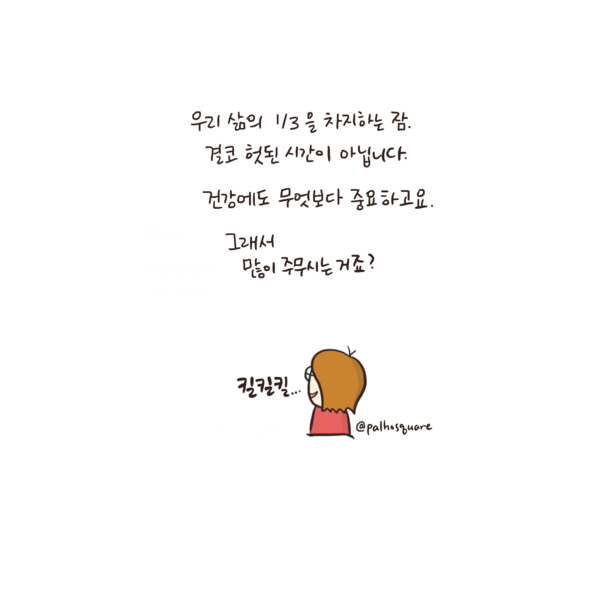 우리 삶의 1/3을 차지하는 잠.
결코 헛된 시간이 아닙니다.
건강에도 무엇보다 중요하고요.
그래서
많이 주무시는 거죠?
킬킬킬...
@palhosquare